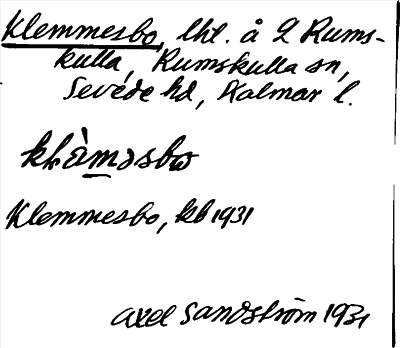 Klemmesbo, lht. å 2 Rums-
kulla, Rumskulla sn,
Sevede hd, Kalmar l.
Klemmesbo, kb 1931
Axel Sandström 1931